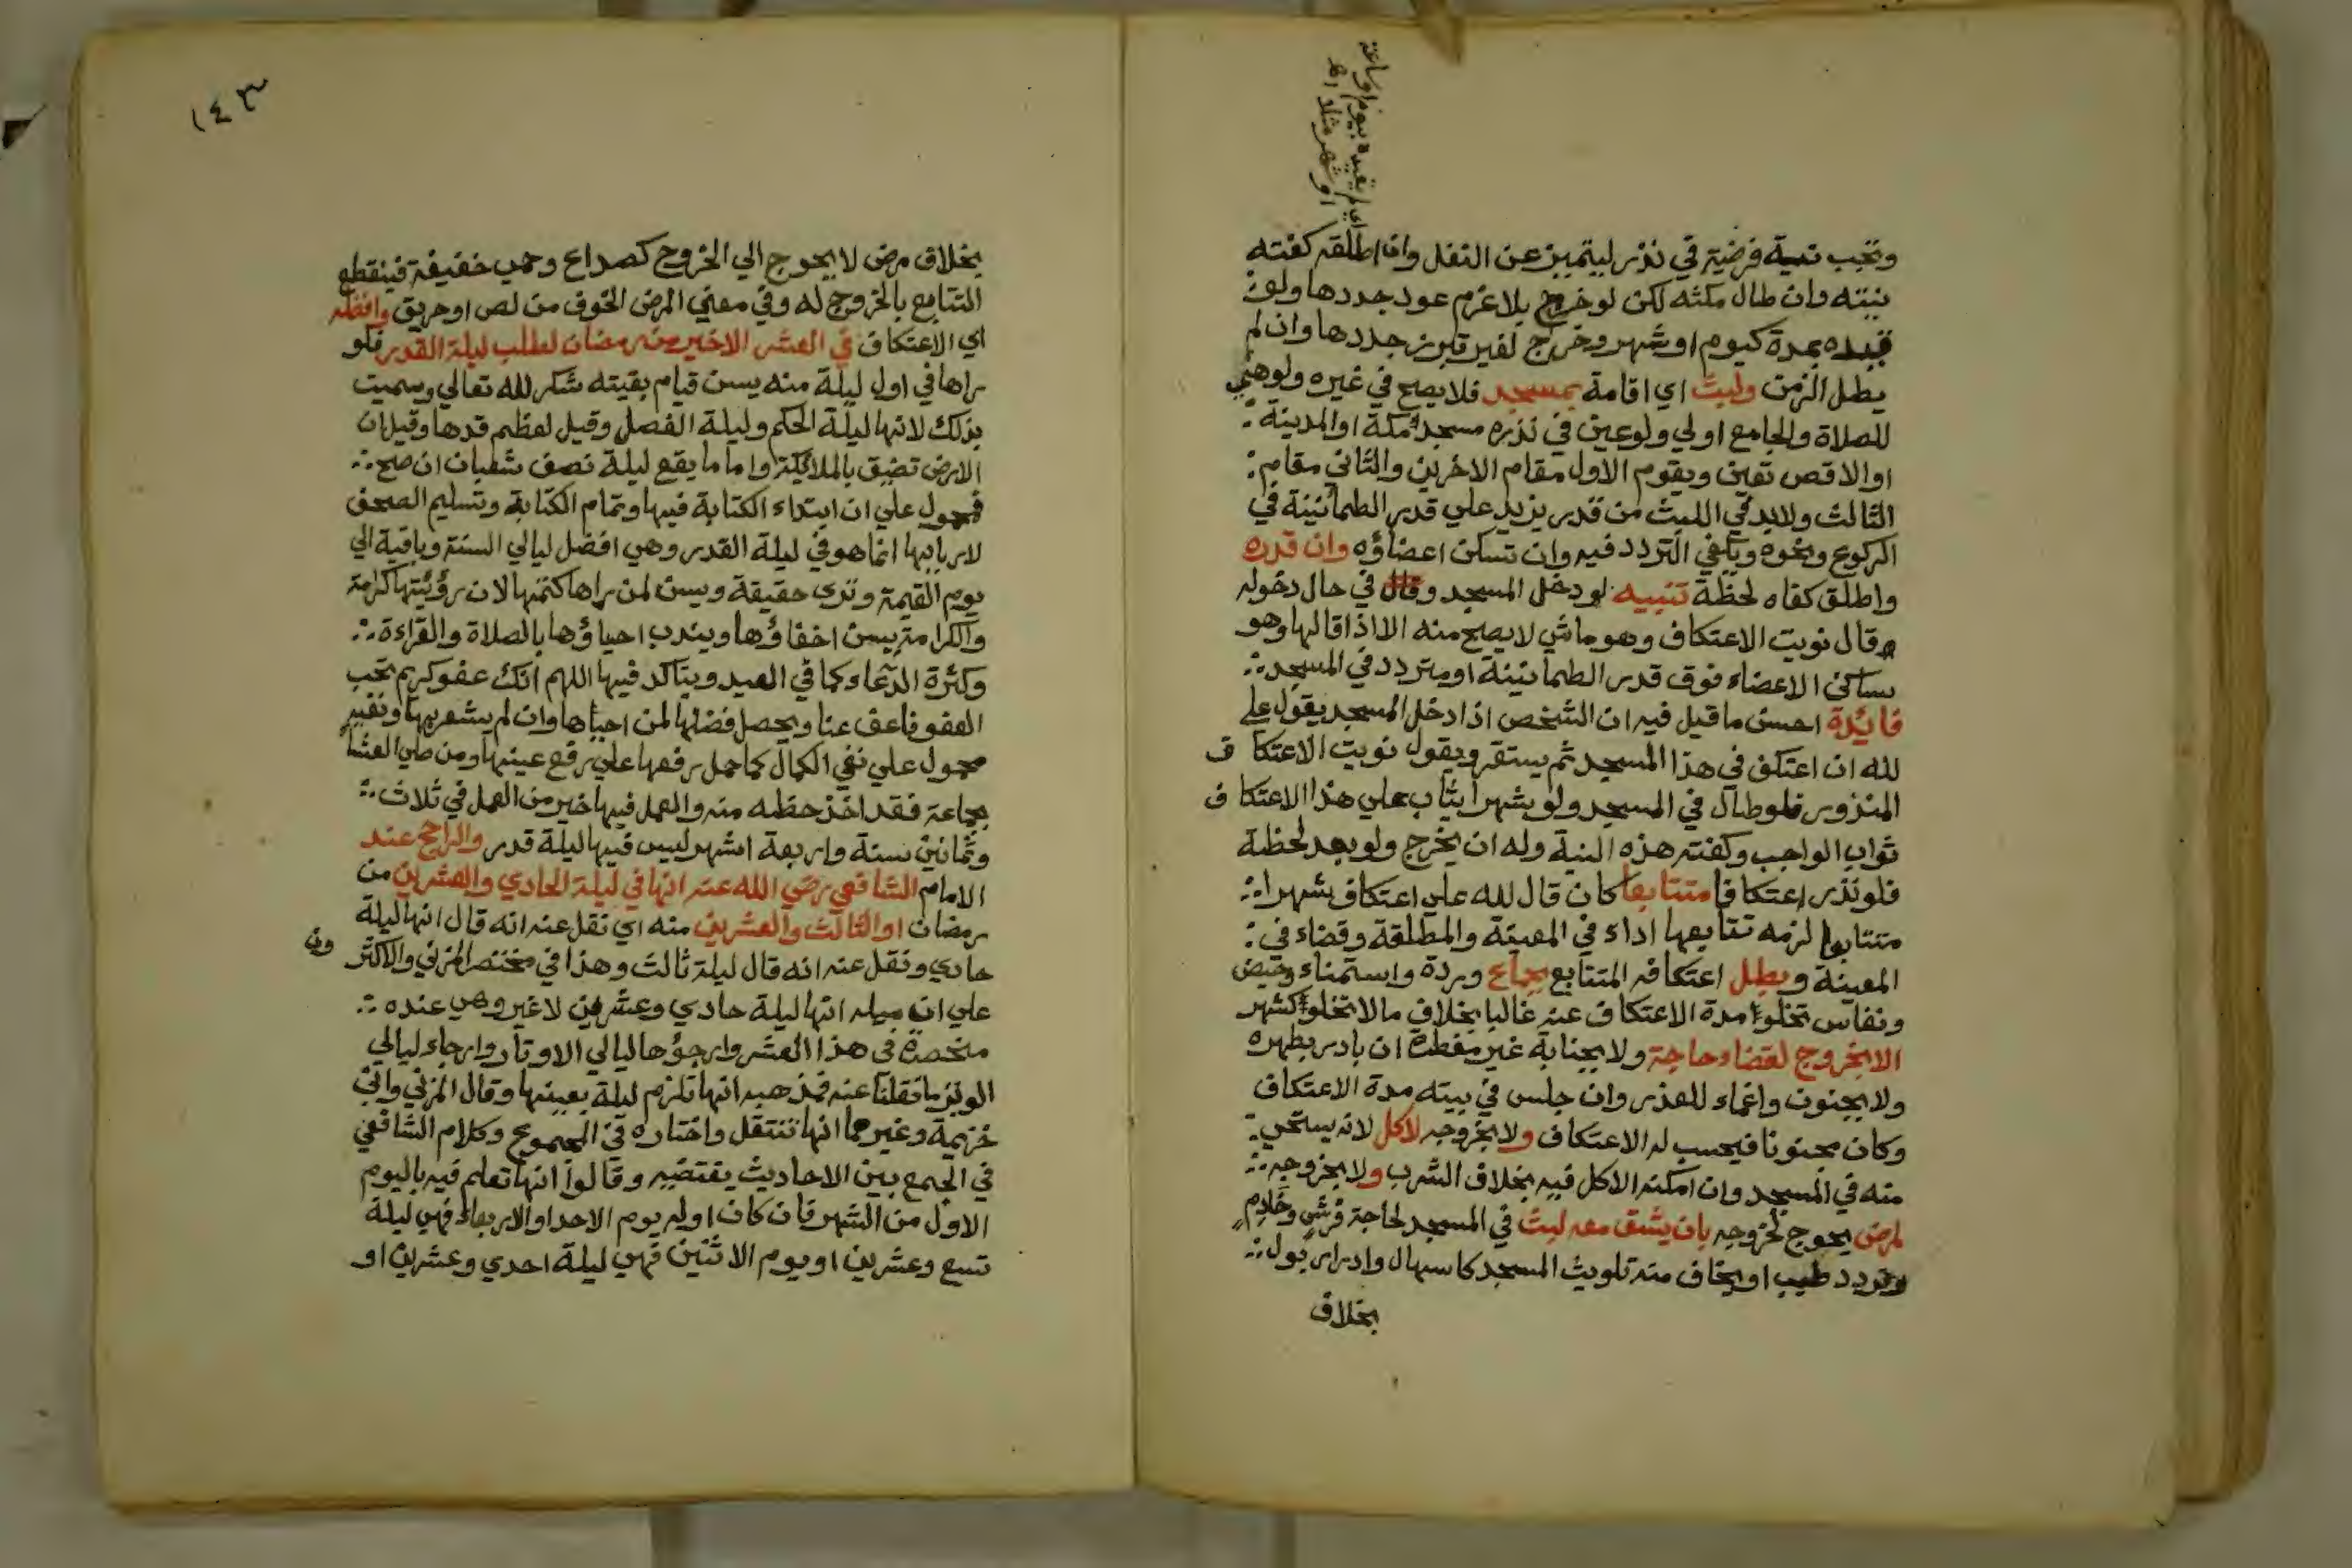 اي لم يقيده بيوم او ساعة
او شهر مثلا اهـ
وتجب نية فرضية في نذر ليتميز عن النفل وان اطلقه كفته
نيته وان طال مكثه لكن لو خرج بلا عزم عود جددها ولو
قيده بمدة كيوم او شهر وخرج لغير تبرز جددها وان لم
يطل الزمن ولبث اي اقامة بمسجد فلا يصح في غيره ولو هيئ
للصلاة والجامع اولي ولو عين في نذره مسجد مكة او المدينة
او الاقصي تعين ويقوم الاول مقام الاخرين والثاني مقام
الثالث ولا بد في اللبث من قدر يزيد علي قدر الطمأنينة في
الركوع ونحوه ويكفي التردد فيه وان تسكن اعضاؤه وان قدره
واطلق كفاه لحظة تنبيه لو دخل المسجد وقال في حال دخوله
وقال نويت الاعتكاف وهو ماشي لا يصح منه الا اذا قالها وهو
ساكن الاعضاء فوق قدر الطمانينة او متردد في المسجد
فائدة احسن ما قيل فيه ان الشخص اذا دخل المسجد يقول علي
لله ان اعتكف في هذا المسجد ثم يستقر ويقول نويت الاعتكاف
المنذور فلو طال في المسجد ولو شهرا يثاب علي هذا الاعتكاف
ثواب الواجب وكفته هذه النية وله ان يخرج ولو بعد لحظة
فلو نذر اعتكافا متتابعا كان قال لله علي اعتكاف شهرا
متتابعا لزمه تتابعها اداء في المعينة والمطلقة وقضاء في
المعينة ويبطل اعتكافه المتتابع بجماع وردة واستمناء وحيض
ونفاس تخلوا مدة الاعتكاف عنه غالبا بخلاف ما لا تخلوا كشهر
الا بخروج لقضاء حاجة ولا بجنابة غير مفطرة ان بادر بطهره
ولا بجنون واغماء للعذر وان جلس في بيته مدة الاعتكاف
وكان مجنونا فيحسب له الاعتكاف ولا بخروجه لاكل لانه يستحي
منه في المسجد وان امكنه الاكل فيه بخلاف الشرب ولا بخروجه
لمرض يحوج لخروجه بان يشق معه لبث في المسجد لحاجة فرش وخادم
وتردد طبيب او يخاف منه تلويث المسجد كاسهال وادرار بول
بخلاف
١٤٣
بخلاف مرض لا يحوج الي الخروج كصداع وحمي خفيفة فينقطع
التتابع بالخروج له وفي معني المرض الخوف من لص او حريق وافضله
اي الاعتكاف في العشر الاخير من رمضان لطلب ليلة القدر فلو
راها في اول ليلة منه يسن قيام بقيته شكر لله تعالي وسميت
بذلك لانها ليلة الحكم وليلة الفصل وقيل لعظم قدها وقيل ان
الارض تضيق بالملائكة واما ما يقع ليلة نصف شعبان ان صح
فمحمول علي ان ابتداء الكتابة فيها وتمام الكتابة وتسليم الصحف
لاربابها انما هو في ليلة القدر وهي افضل ليالي السنة وباقية الي
يوم القيمة وتري حقيقة ويسن لمن يراها كتمها لان رؤيتها كرامة
والكرامة يسن اخفاؤها ويندب احياؤها بالصلاة والقراءة
وكثرة الدعاء كما في العيد ويتاكد فيها اللهم انك عفو كريم تحب
العفو فاعف عنا ويحصل فضلها لمن احياها وان لم يشعر بها ونفيه
محمول علي نفي الكمال كما حمل رفعها علي رفع عينها ومن صلي العشا
بجماعة فقد اخذ حظه منه والعمل فيها خير من العمل في ثلاث
وثمانين سنة واربعة اشهر ليس فيها ليلة قدر والراجح عند
الامام الشافعي رضي الله عنه انها في ليلة الحادي والعشرين من
رمضان او الثالث والعشرين منه اي نقل عنه انه قال انها ليلة
حادي ونقل عنه انه قال ليلة ثالث وهذا في مختصر المزني والاكثرون
علي ان ميله انها ليلة حادي وعشرين لا غير وهي عنده
منحصرة في هذا العشر وارجؤها ليالي الاوتار وارجاء ليالي
الوتر ما نقلنا عنه فمذهبه انها تلزم ليلة بعينها وقال المزني وابن
خزيمة وغيرهما انها تنتقل واختاره في المجموع وكلام الشافعي
في الجمع بين الاحاديث يقتضيه وقالوا انها تعلم فيه باليوم
الاول من الشهر فان كان اوله يوم الاحد او الاربعاء فهي ليلة
تسع وعشرين او يوم الاثنين فهي ليلة احدي وعشرين او